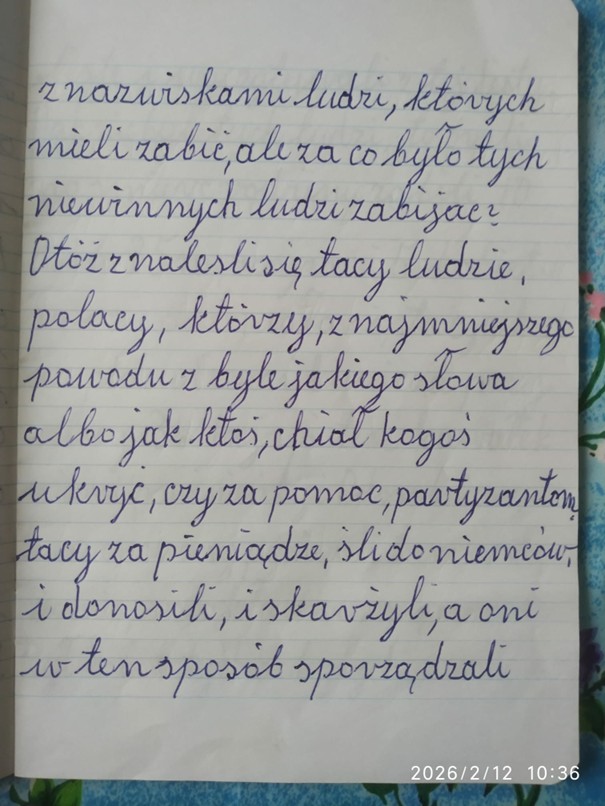 z nazwiskami ludzi, których
mieli zabić, ale za co było tych
niewinnych ludzi zabijac?
Otóż znalesli się tacy ludzie,
polacy, którzy, z najmniejszego
powodu z byle jakiego słowa
albo jak ktoś, chiał kogoś
ukryć, czy za pomoc, partyzantom,
tacy za pieniądze, śli do niemców,
i donosili, i skarżyli, a oni
w ten sposób sporządzali
2026/2/12 10:36